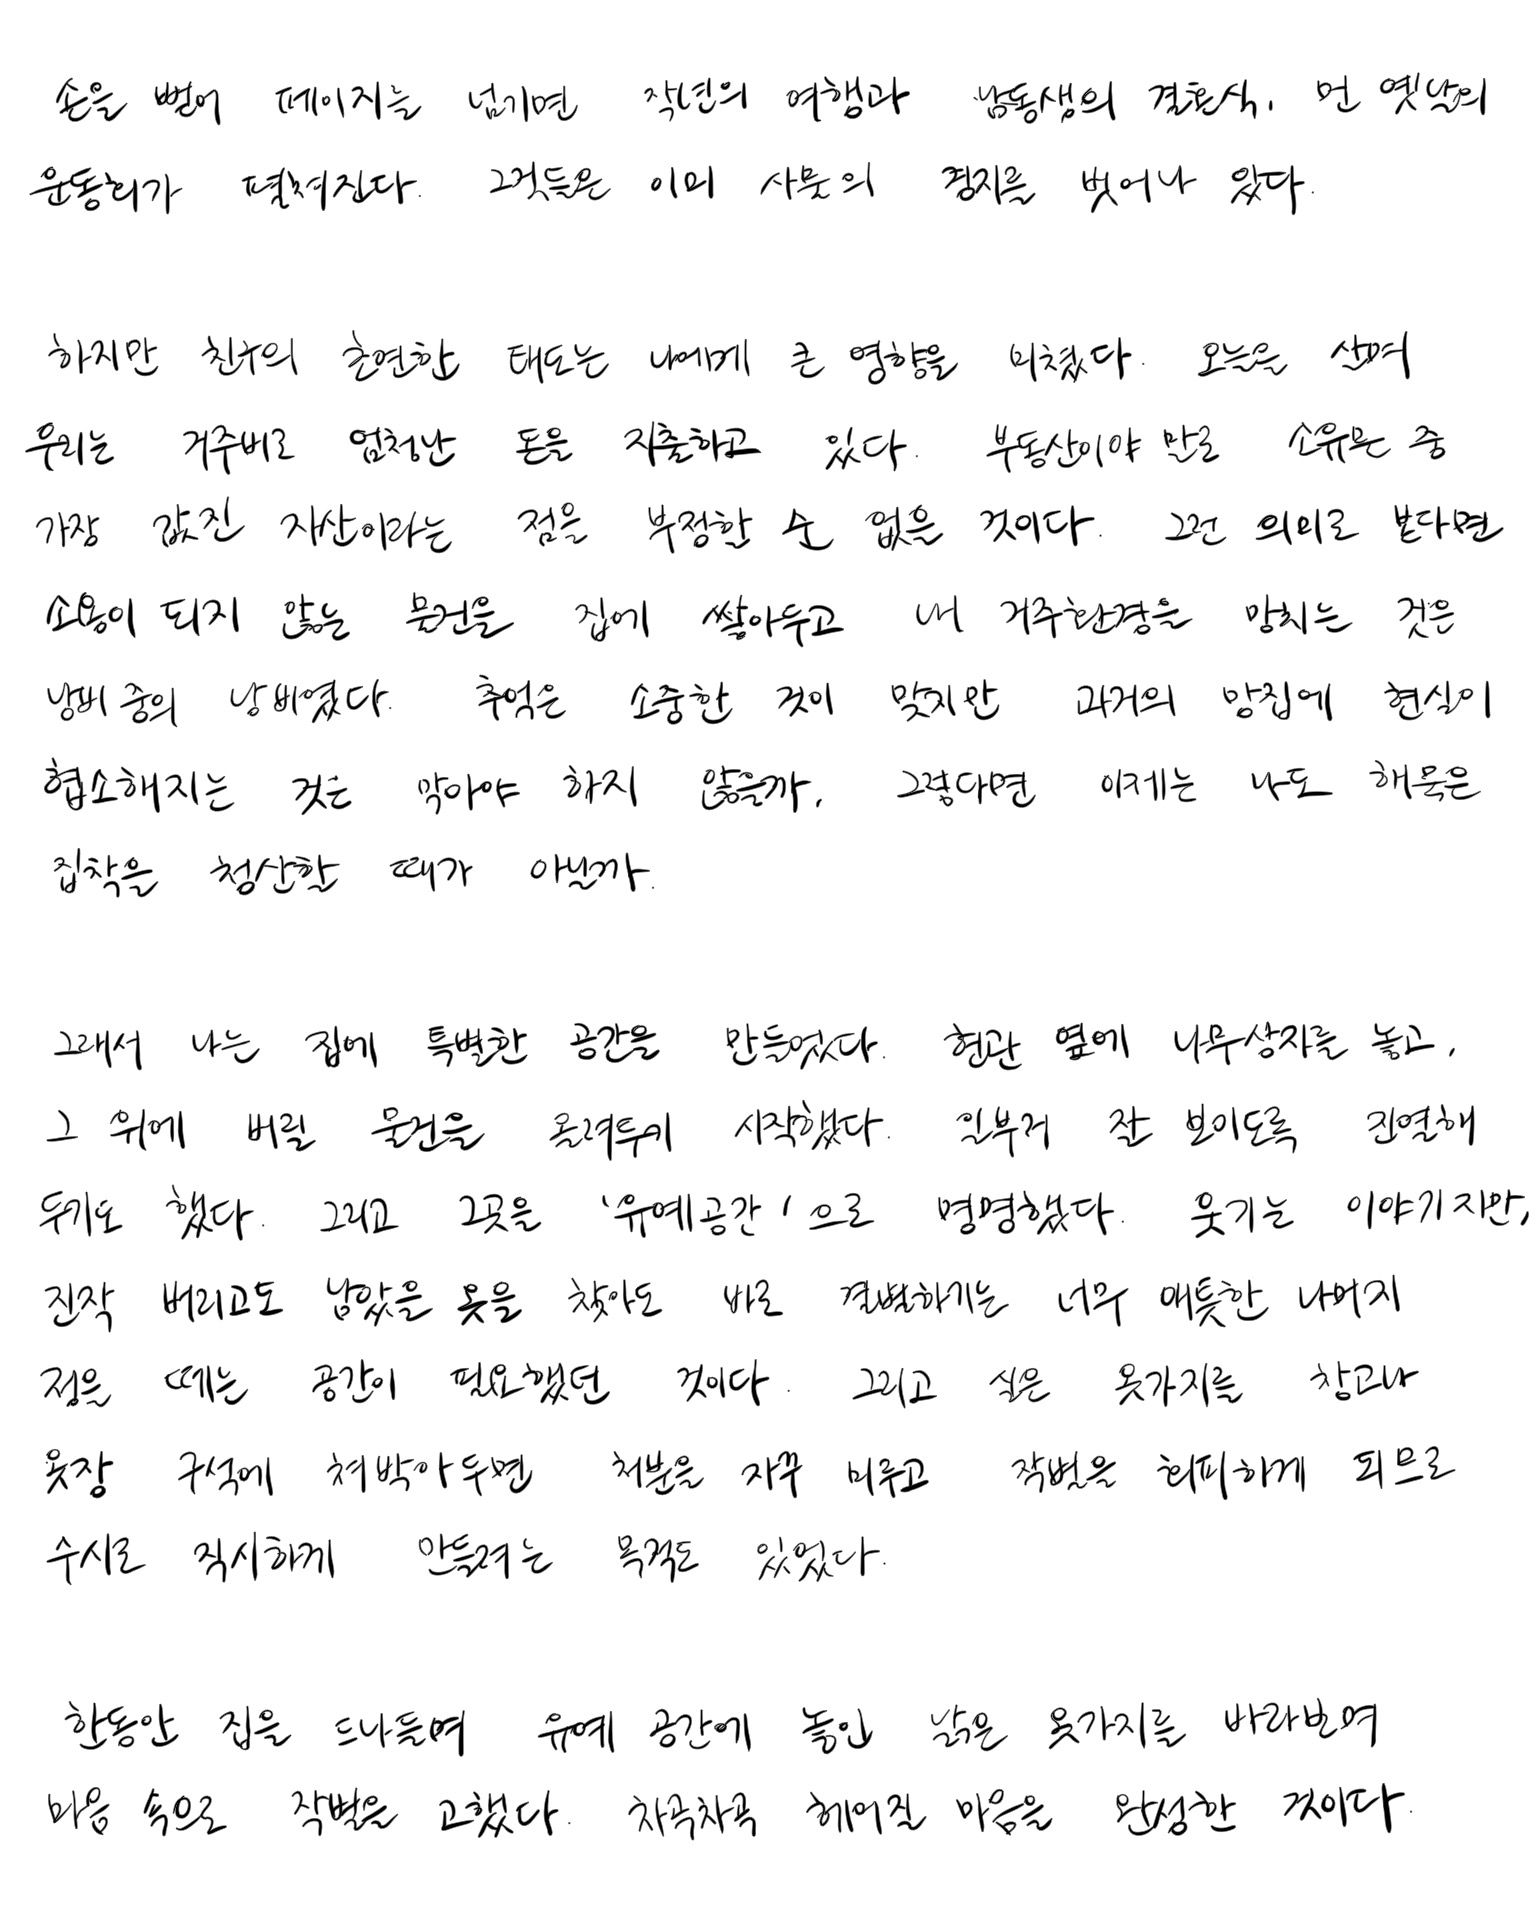 손을 뻗어 페이지를 넘기면 작년의 여행과 남동생의 결혼식, 먼 옛날의
운동회가 펼쳐진다. 그것들은 이미 사물의 경지를 벗어나 있다.
하지만 친구의 초연한 태도는 나에게 큰 영향을 미쳤다. 오늘을 살며
우리는 거주비로 엄청난 돈을 지출하고 있다. 부동산이야 말로 소유물 중
가장 값진 자산이라는 점을 부정할 순 없을 것이다. 그런 의미로 본다면
소용이 되지 않는 물건을 집에 쌓아두고 내 거주환경을 망치는 것은
낭비 중의 낭비였다. 추억은 소중한 것이 맞지만 과거의 망집에 현실이
협소해지는 것은 막아야 하지 않을까, 그렇다면 이제는 나도 해묵은
집착을 청산할 때가 아닐까.
그래서 나는 집에 특별한 공간을 만들었다. 현관 옆에 나무상자를 놓고,
그 위에 버릴 물건을 올려두기 시작했다. 일부러 잘 보이도록 진열해
두기도 했다. 그리고 그곳을 '유예공간'으로 명명했다. 웃기는 이야기지만,
진작 버리고도 남았을 옷을 찾아도 바로 결별하기는 너무 애틋한 나머지
정을 떼는 공간이 필요했던 것이다. 그리고 싫은 옷가지를 창고나
옷장 구석에 처박아두면 처분을 자꾸 미루고 작별을 회피하게 되므로
수시로 직시하게 만들려는 목적도 있었다.
한동안 집을 드나들며 유예 공간에 놓인 낡은 옷가지를 바라보며
마음 속으로 작별을 고했다. 차곡차곡 헤어질 마음을 완성한 것이다.